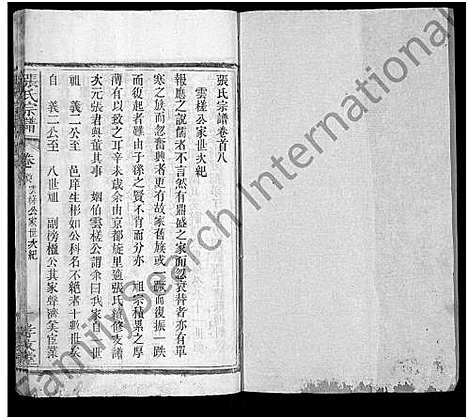 張氏宗譜卷首八
雲槎公家世次紀
報應之說儒者不言然有鼎盛之家而忽衰替者亦有單
寒之族而忽奮興者更有故家舊族或一蹶而復振一跌
而復起者雖由子孫之賢不肖而分亦 祖宗積累之厚
薄有以致之耳辛未歲余由京都旋里適張氏續修支譜
次元張君與董其事 姻伯雲槎公謂余曰我家自一世
祖 義二公至 邑庠生彬如公科名不絕者十數世矣
自 義二公至 八世祖 副榜 公其家聲濟美宦業
張氏宗譜
卷首 雲槎公家世次紀
孝友堂
Family Search International